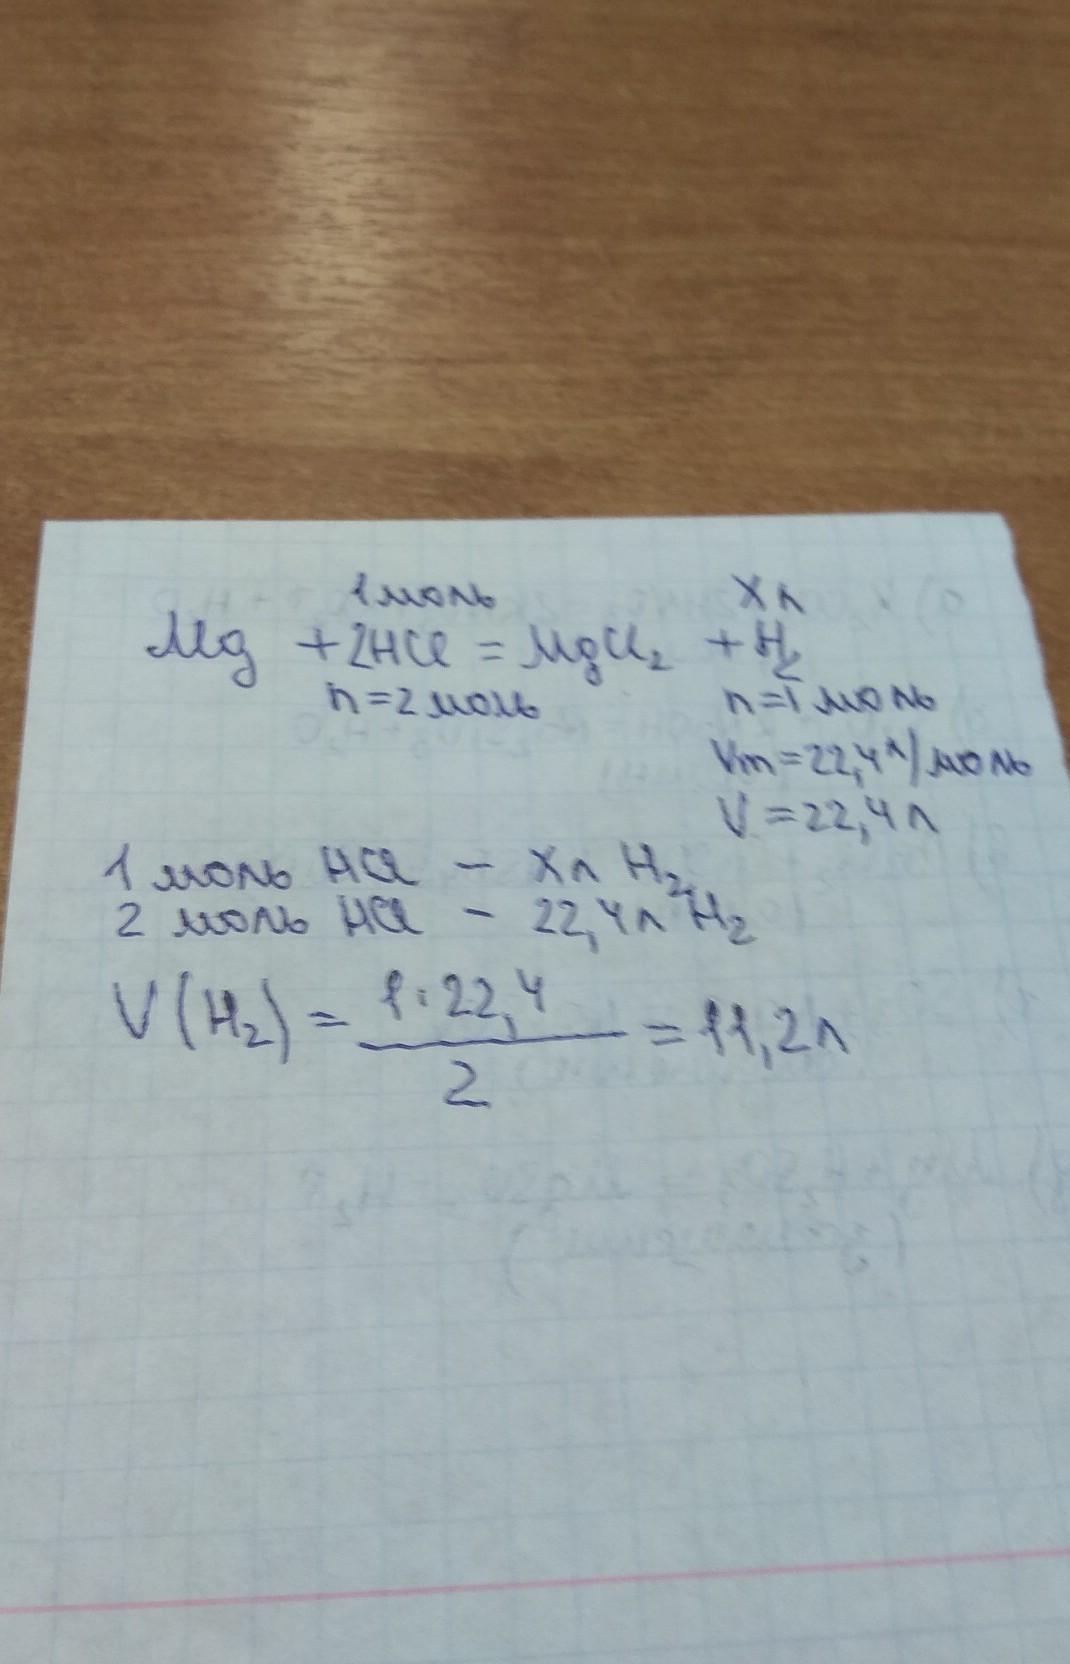 1 моль Xл
Mg + 2HCl = MgCl₂ + H₂
n=2 моль n=1 моль
Vm=22,4 л/моль
V=22,4 л
1 моль HCl – Xл H₂
2 моль HCl – 22,4 л H₂
V(H₂) = 1·22,4 / 2 = 11,2 л